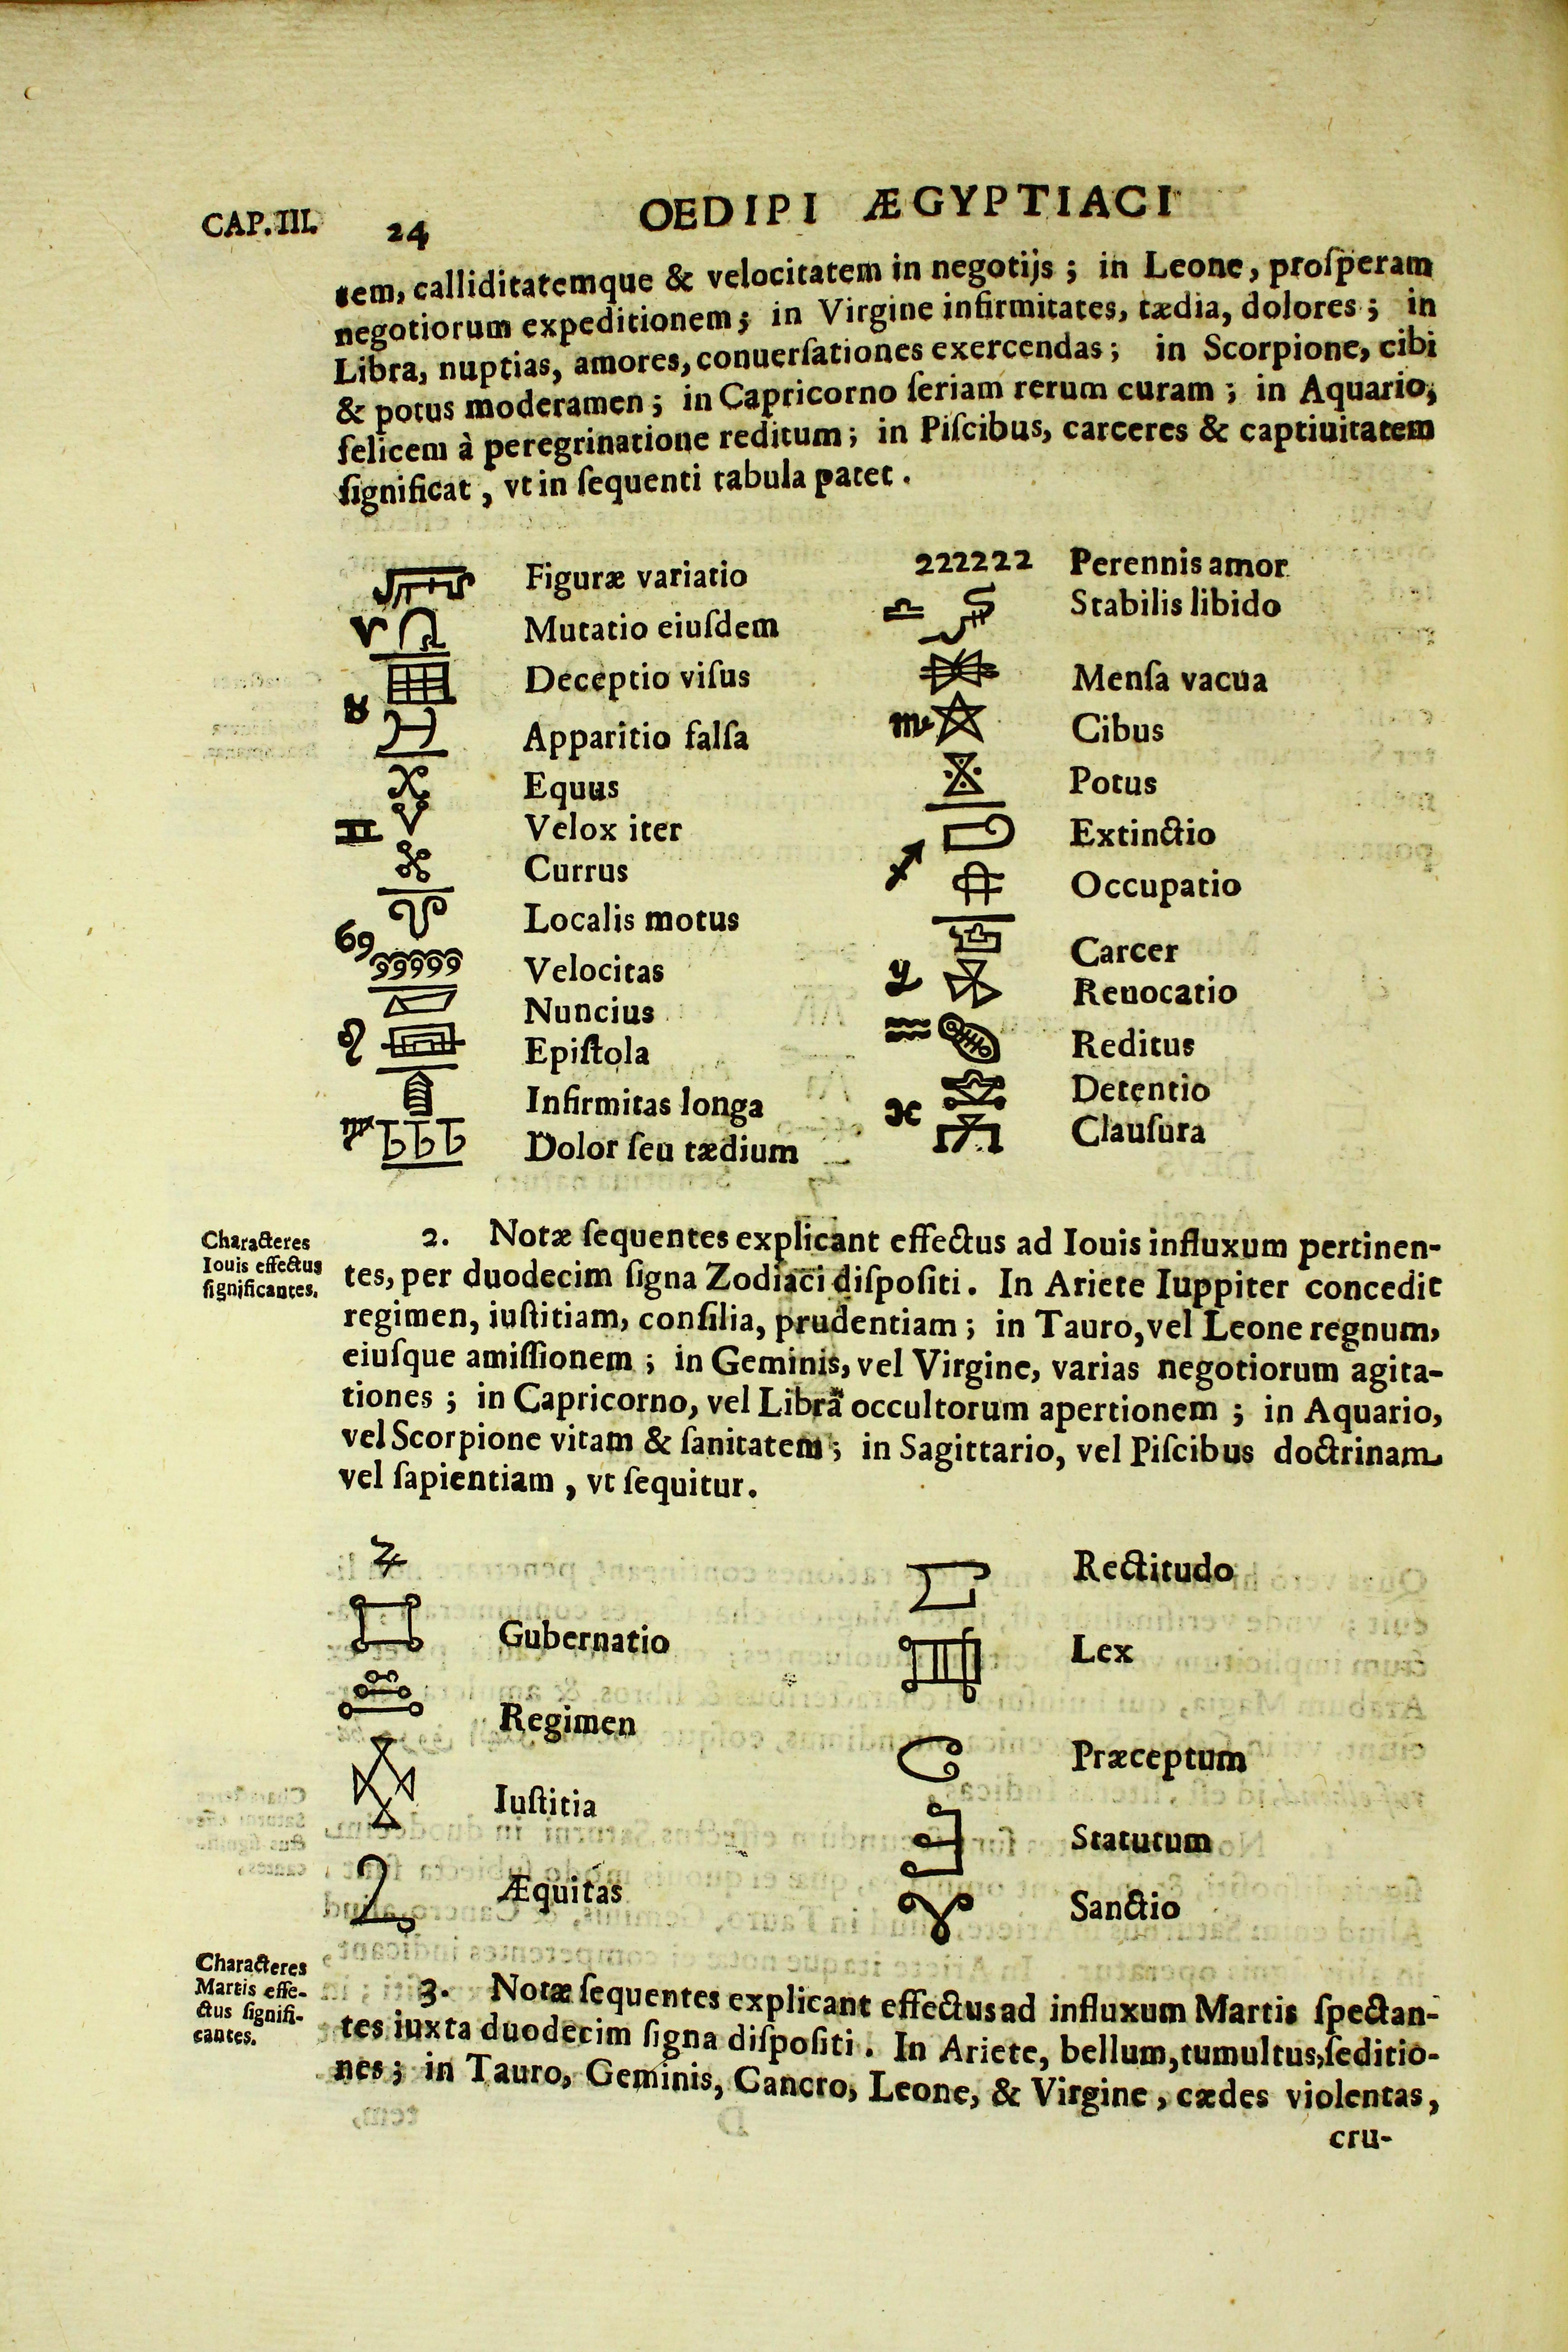 CAP. III. 24 OEDIPI ÆGYPTIACI
tem, calliditatemque & velocitatem in negotijs ; in Leone, proſperam
negotiorum expeditionem; in Virgine infirmitates, tædia, dolores ; in
Libra, nuptias, amores, conuerſationes exercendas ; in Scorpione, cibi
& potus moderamen ; in Capricorno ſeriam rerum curam ; in Aquario,
felicem à peregrinatione reditum ; in Piſcibus, carceres & captiuitatem
ſignificat , vt in ſequenti tabula patet .
Figuræ variatio
♈ Mutatio eiuſdem
Deceptio viſus
♉ Apparitio falſa
Equus
♊ Velox iter
Currus
Localis motus
♋ 99999 Velocitas
Nuncius
♌ Epiſtola
Infirmitas longa
♍ Dolor ſeu tædium
222222 Perennis amor
♎ Stabilis libido
Menſa vacua
♏ Cibus
Potus
Extinctio
♐ Occupatio
Carcer
♑ Reuocatio
♒ Reditus
Detentio
♓ Clauſura
Characteres
Iouis effectus
ſignificantes.
2. Notæ ſequentes explicant effectus ad Iouis influxum pertinen-
tes, per duodecim ſigna Zodiaci diſpoſiti. In Ariete Iuppiter concedit
regimen, iuſtitiam, conſilia, prudentiam ; in Tauro, vel Leone regnum,
eiuſque amiſſionem ; in Geminis, vel Virgine, varias negotiorum agita-
tiones ; in Capricorno, vel Libra occultorum apertionem ; in Aquario,
vel Scorpione vitam & ſanitatem ; in Sagittario, vel Piſcibus doctrinam
vel ſapientiam , vt ſequitur.
♃
Gubernatio
Regimen
Iuſtitia
Æquitas
Rectitudo
Lex
Præceptum
Statutum
Sanctio
Characteres
Martis effe-
ctus ſignifi-
cantes.
3. Notæ ſequentes explicant effectus ad influxum Martis ſpectan-
tes iuxta duodecim ſigna diſpoſiti . In Ariete, bellum, tumultus, ſeditio-
nes ; in Tauro, Geminis, Cancro, Leone, & Virgine , cædes violentas,
cru-